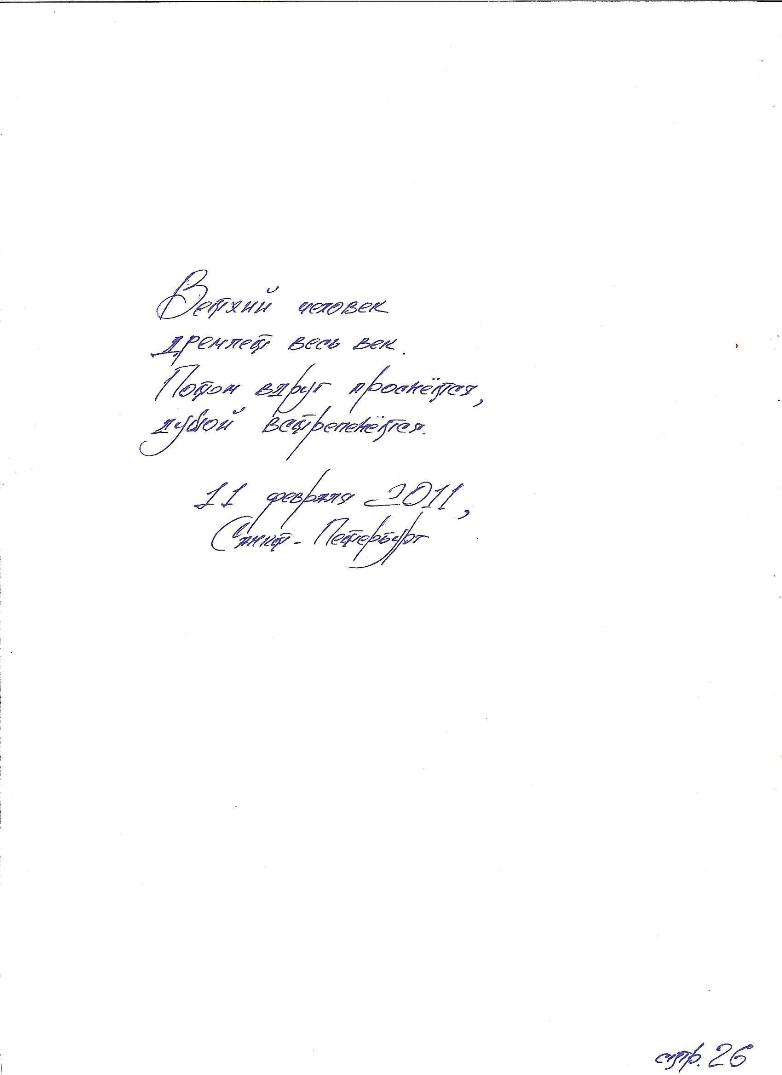 Ветхий человек
дремлет весь век.
Потом вдруг проснётся,
душой встрепенётся.
11 февраля 2011,
Санкт-Петербург
стр. 26